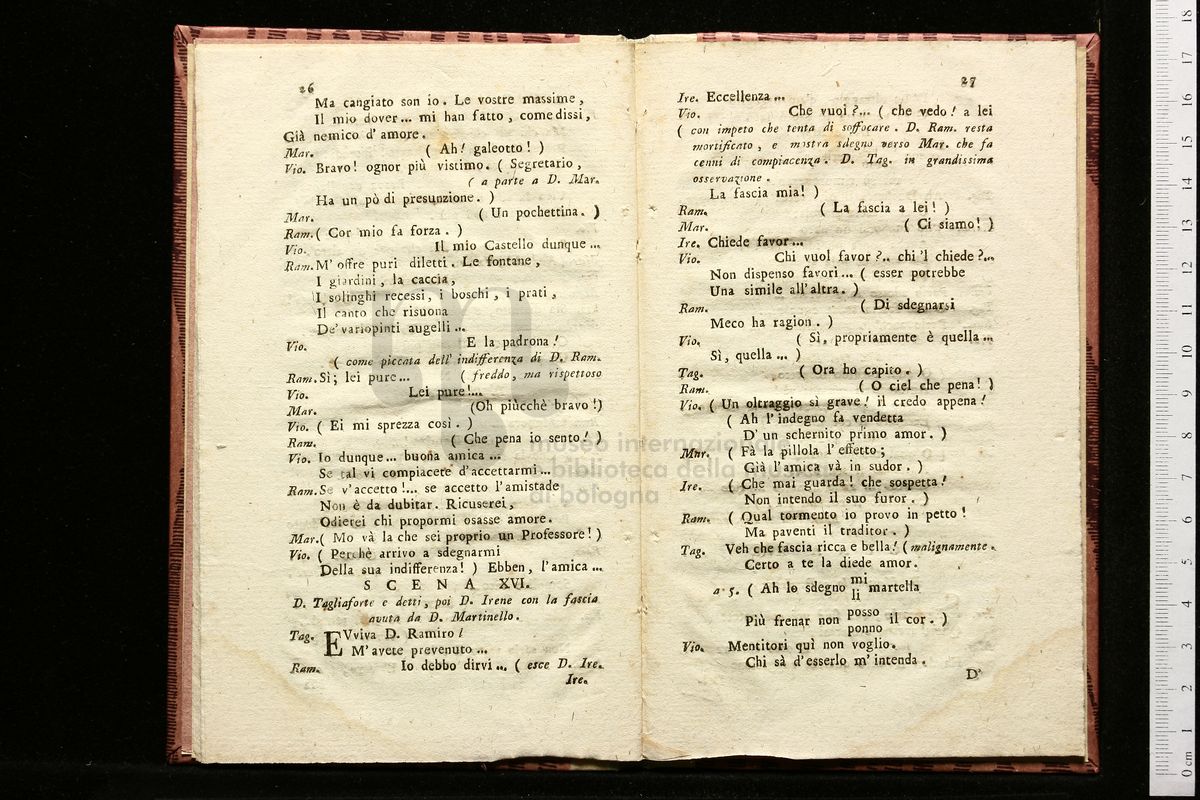 26
Ma cangiato son io. Le vostre massime,
Il mio dover... mi han fatto, come dissi,
Già nemico d'amore.
Mar. ( Ah! galeotto! )
Vio. Bravo! ognor più vistimo. ( Segretario,
( a parte a D. Mar.
Ha un pò di presunzione. )
Mar. ( Un pochettina. )
Ram. ( Cor mio fa forza. )
Vio. Il mio Castello dunque...
Ram. M'offre puri diletti. Le fontane,
I giardini, la caccia,
I solinghi recessi, i boschi, i prati,
Il canto che risuona
De' variopinti augelli...
Vio. E la padrona!
( come piccata dell' indifferenza di D. Ram.
Ram. Sì; lei pure... ( freddo, ma rispettoso
Vio. Lei pure!...
Mar. (Oh piùcchè bravo!)
Vio. ( Ei mi sprezza così. )
Ram. ( Che pena io sento! )
Vio. Io dunque... buona amica...
Se tal vi compiacete d'accettarmi...
Ram. Se v'accetto!... se accetto l'amistade
Non è da dubitar. Ricuserei,
Odierei chi propormi osasse amore.
Mar. ( Mo và la che sei proprio un Professore! )
Vio. ( Perchè arrivo a sdegnarmi
Della sua indifferenza! ) Ebben, l'amica...
SCENA XVI.
D. Tagliaforte e detti, poi D. Irene con la fascia
avuta da D. Martinello.
Tag. EVviva D. Ramiro!
M'avete prevenuto...
Ram. Io debbo dirvi... ( esce D. Ire.
Ire.
27
Ire. Eccellenza...
Vio. Che vuoi?... ( che vedo! a lei
( con impeto che tenta di soffocare. D. Ram. resta
mortificato, e mostra sdegno verso Mar. che fa
cenni di compiacenza. D. Tag. in grandissima
osservazione.
La fascia mia! )
Ram. ( La fascia a lei! )
Mar. ( Ci siamo! )
Ire. Chiede favor...
Vio. Chi vuol favor?.. chi'l chiede?...
Non dispenso favori... ( esser potrebbe
Una simile all'altra. )
Ram. ( Di sdegnarsi
Meco ha ragion. )
Vio. ( Sì, propriamente è quella...
Sì, quella... )
Tag. ( Ora ho capito. )
Ram. ( O ciel che pena! )
Vio. ( Un oltraggio sì grave! il credo appena!
( Ah l'indegno fa vendetta
D'un schernito primo amor. )
Mar. ( Fà la pillola l'effetto;
Già l'amica và in sudor. )
Ire. ( Che mai guarda! che sospetta!
Non intendo il suo furor. )
Ram. ( Qual tormento io provo in petto!
Ma paventi il traditor. )
Tag. Veh che fascia ricca e bella! ( malignamente.
Certo a te la diede amor.
a 5. ( Ah lo sdegno mi martella
li
Più frenar non posso il cor. )
ponno
Vio. Mentitori quì non voglio.
Chi sà d'esserlo m'intenda.
D'
museo internazionale
biblioteca della musica
di bologna
0 cm 1 2 3 4 5 6 7 8 9 10 11 12 13 14 15 16 17 18